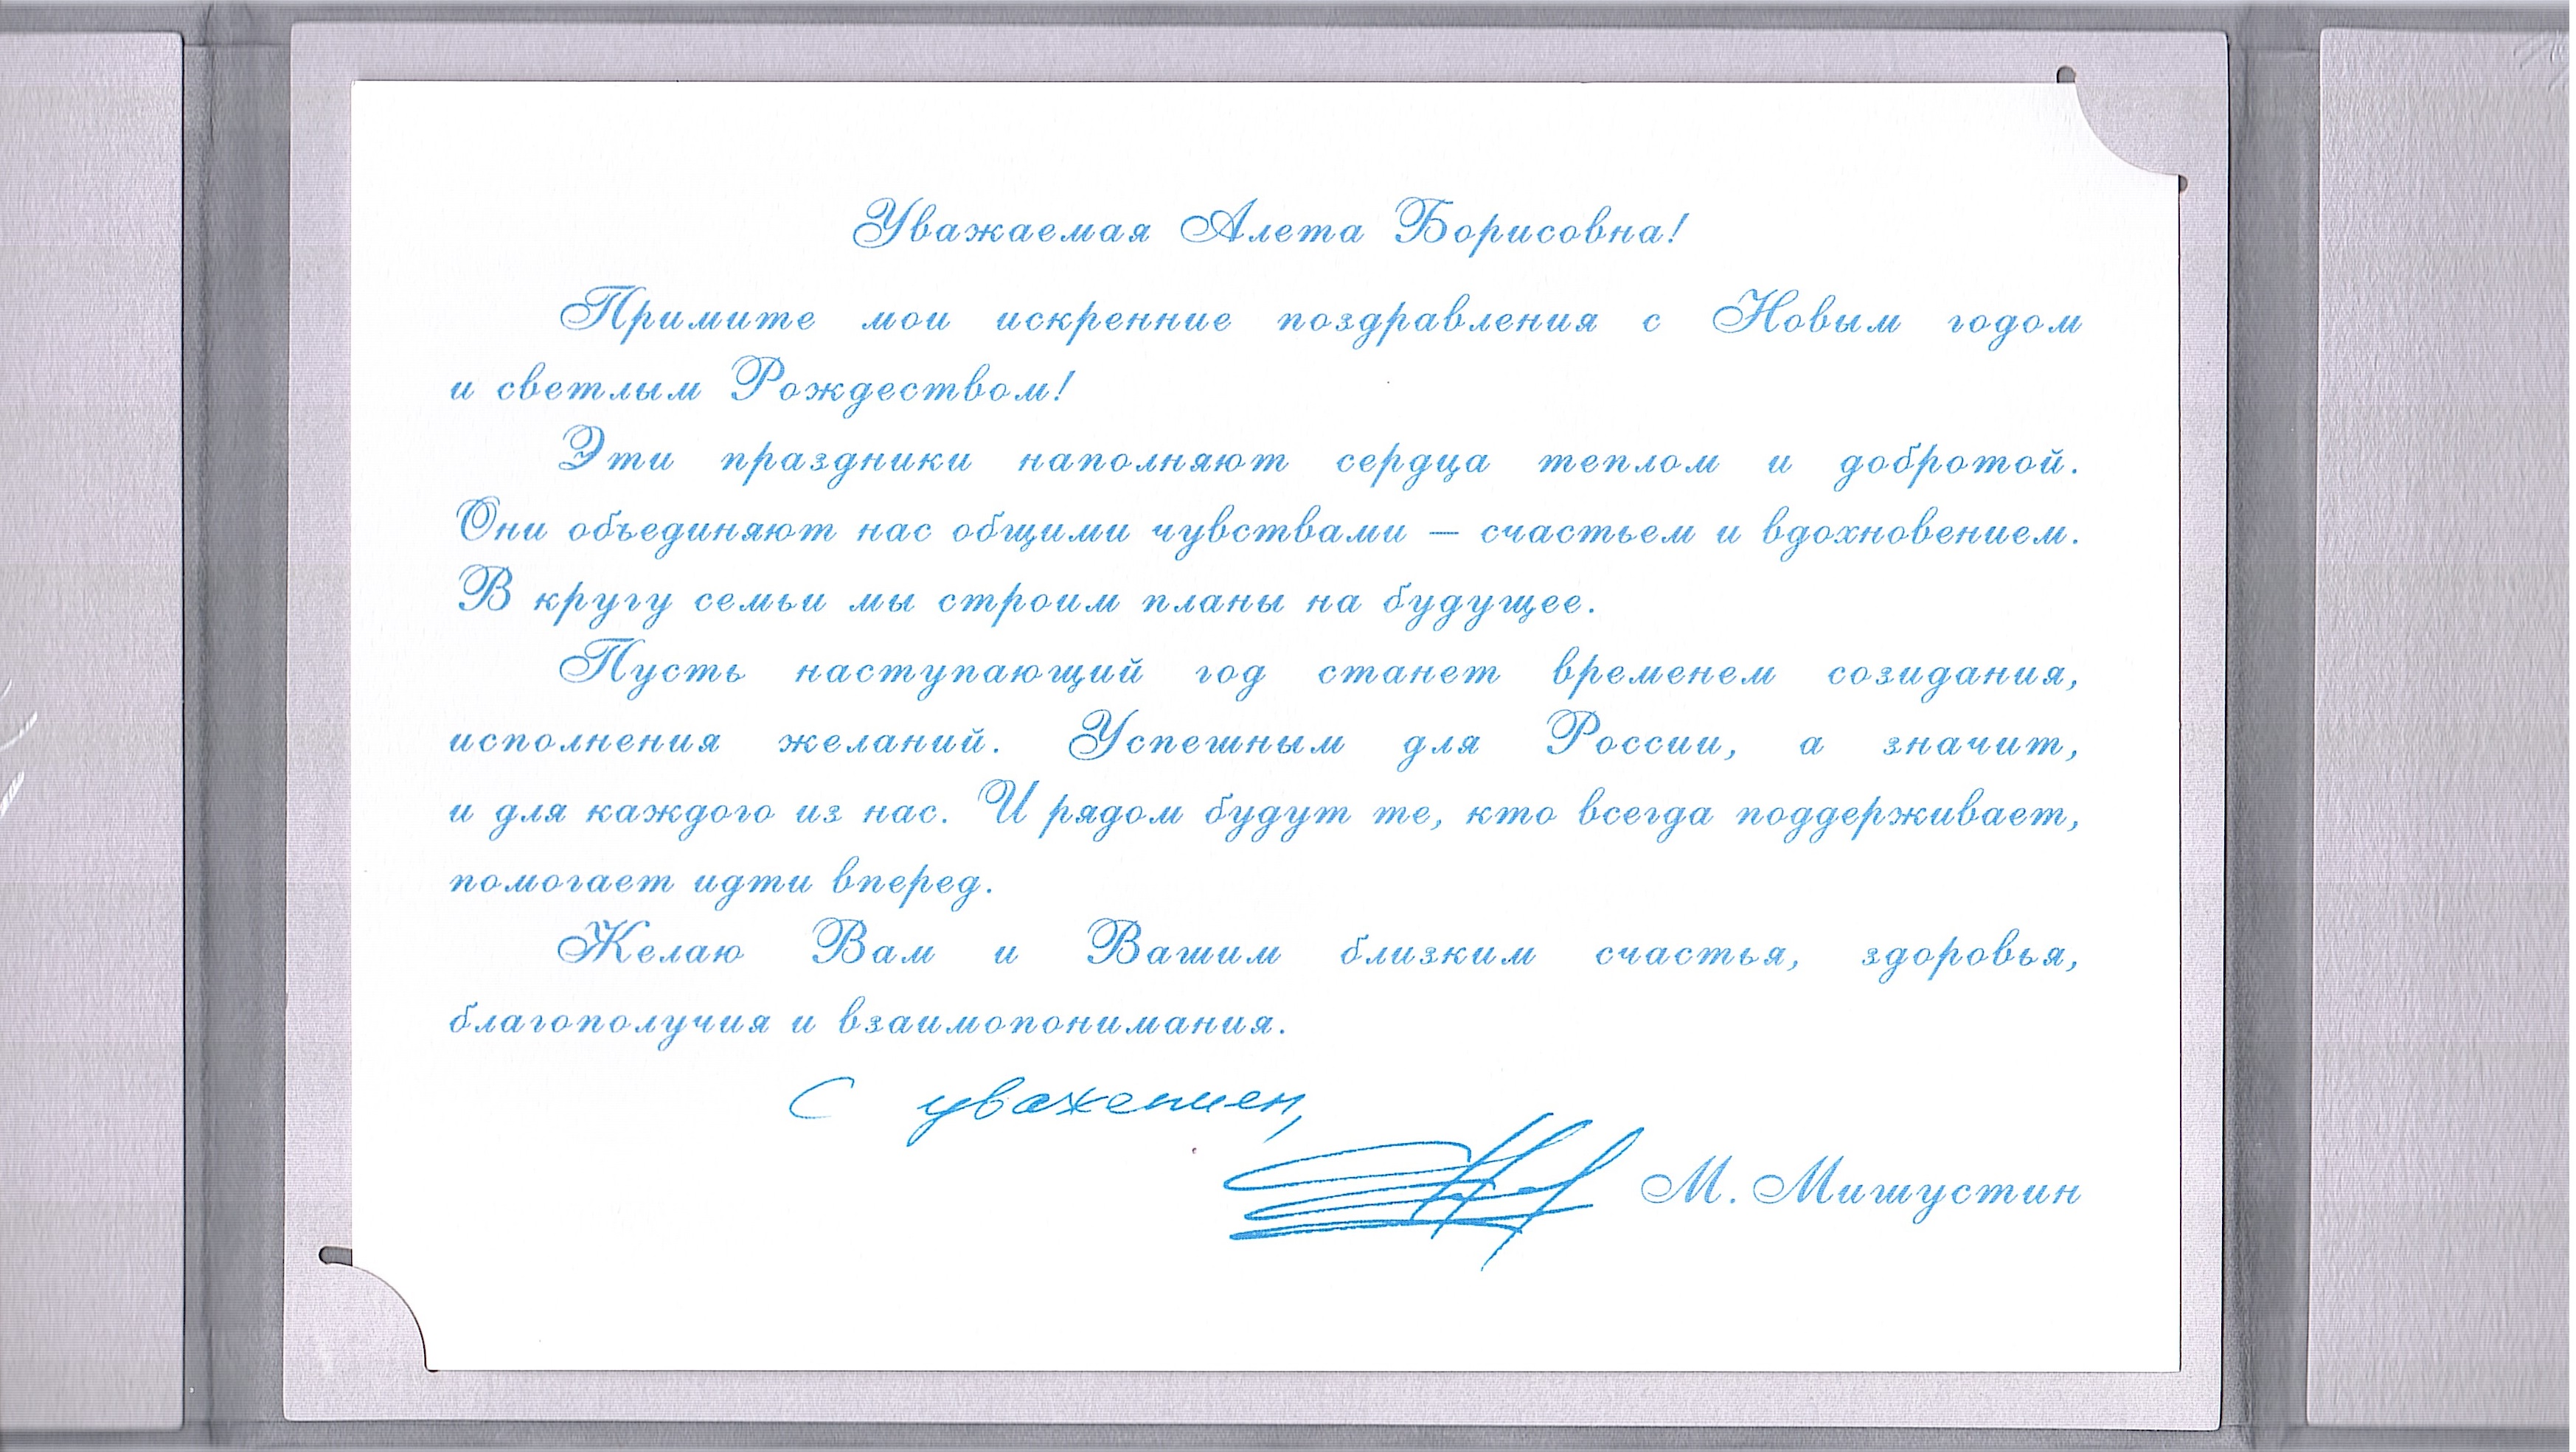 Уважаемая Алета Борисовна!
Примите мои искренние поздравления с Новым годом
и светлым Рождеством!
Эти праздники наполняют сердца теплом и добротой.
Они объединяют нас общими чувствами – счастьем и вдохновением.
В кругу семьи мы строим планы на будущее.
Пусть наступающий год станет временем созидания,
исполнения желаний. Успешным для России, а значит,
и для каждого из нас. И рядом будут те, кто всегда поддерживает,
помогает идти вперед.
Желаю Вам и Вашим близким счастья, здоровья,
благополучия и взаимопонимания.
С уважением,
М. Мишустин